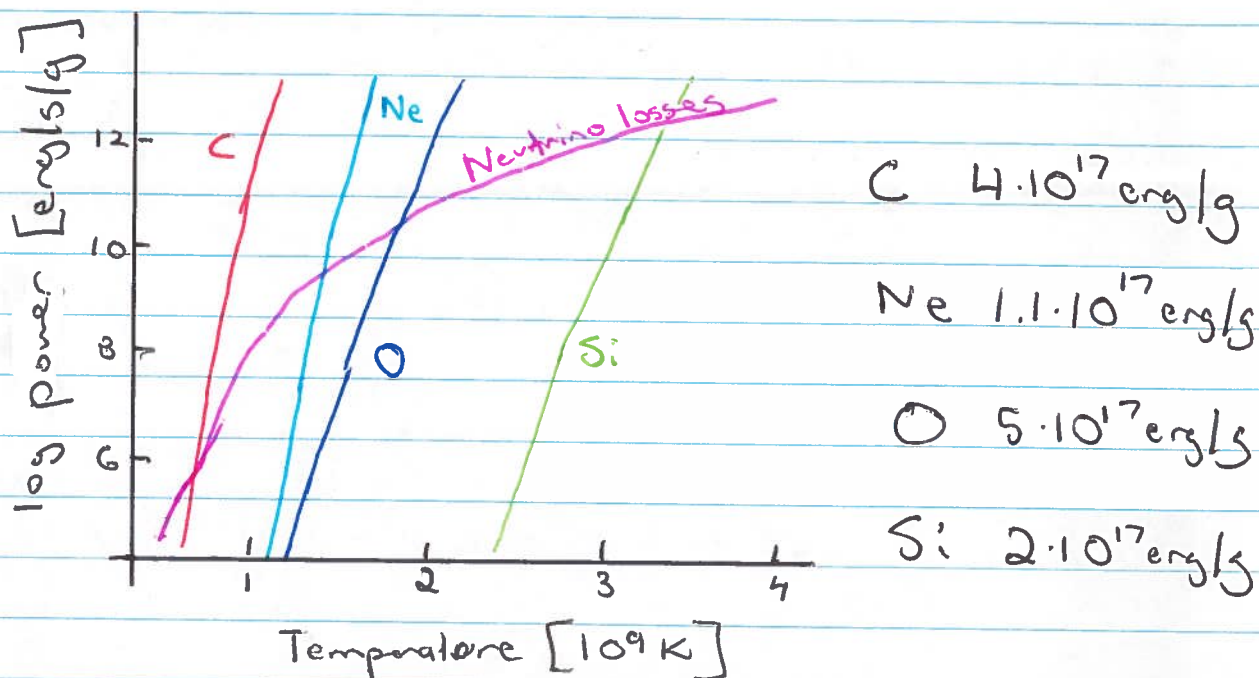 log power [erg/s/g]
12
10
8
6
C
Ne
O
Si
Neutrino losses
1 2 3 4
Temperature [10⁹ K]
C 4·10¹⁷ erg/g
Ne 1.1·10¹⁷ erg/g
O 5·10¹⁷ erg/g
Si 2·10¹⁷ erg/g